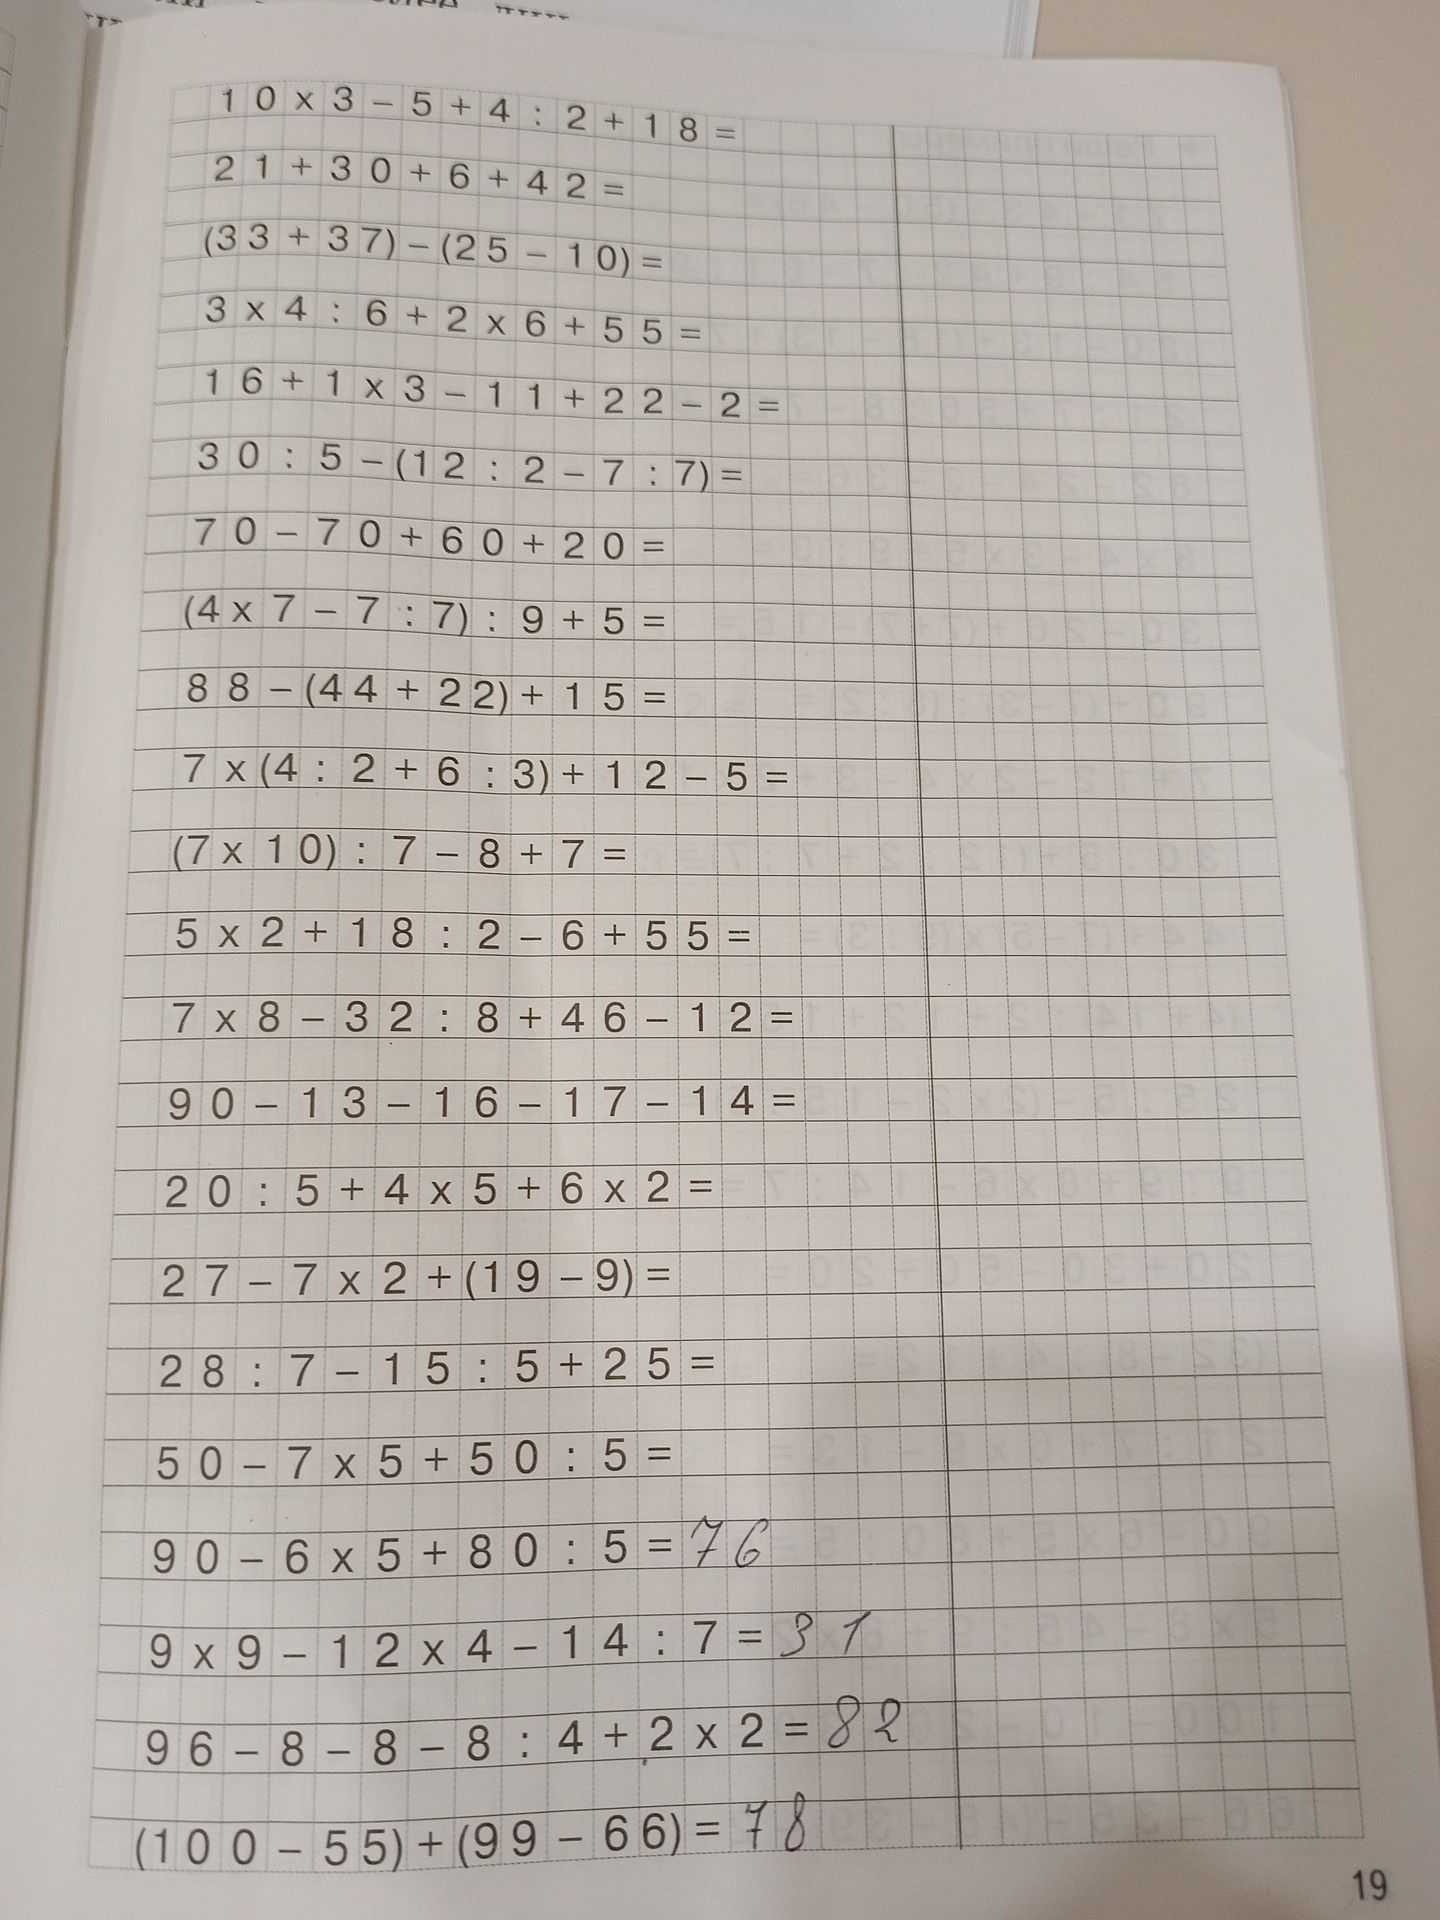 10 x 3 – 5 + 4 : 2 + 18 =
21 + 30 + 6 + 42 =
(33 + 37) – (25 – 10) =
3 x 4 : 6 + 2 x 6 + 55 =
16 + 1 x 3 – 11 + 22 – 2 =
30 : 5 – (12 : 2 – 7 : 7) =
70 – 70 + 60 + 20 =
(4 x 7 – 7 : 7) : 9 + 5 =
88 – (44 + 22) + 15 =
7 x (4 : 2 + 6 : 3) + 12 – 5 =
(7 x 10) : 7 – 8 + 7 =
5 x 2 + 18 : 2 – 6 + 55 =
7 x 8 – 32 : 8 + 46 – 12 =
90 – 13 – 16 – 17 – 14 =
20 : 5 + 4 x 5 + 6 x 2 =
27 – 7 x 2 + (19 – 9) =
28 : 7 – 15 : 5 + 25 =
50 – 7 x 5 + 50 : 5 =
90 – 6 x 5 + 80 : 5 = 76
9 x 9 – 12 x 4 – 14 : 7 = 31
96 – 8 – 8 – 8 : 4 + 2 x 2 = 82
(100 – 55) + (99 – 66) = 78
19